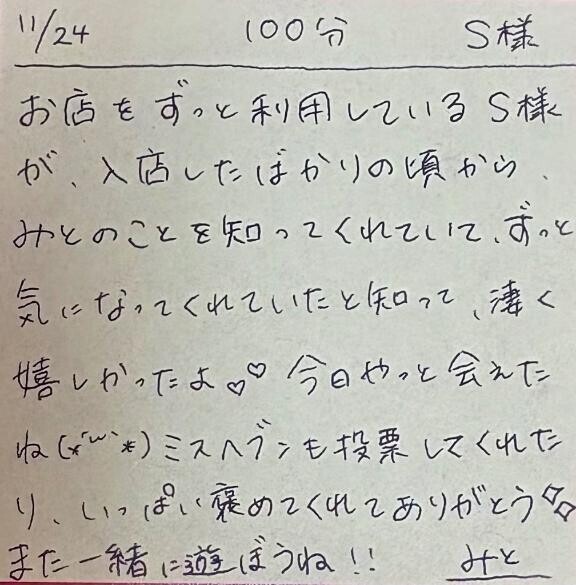 11/24 100分 S様
お店をずっと利用しているS様
が、入店したばかりの頃から、
みとのことを知ってくれていて、ずっと
気になってくれていたと知って、凄く
嬉しかったよ♡♡ 今日やっと会えた
ね(*´ω`*)ミスヘブンも投票してくれた
り、いっぱい褒めてくれてありがとう
また一緒に遊ぼうね!! みと